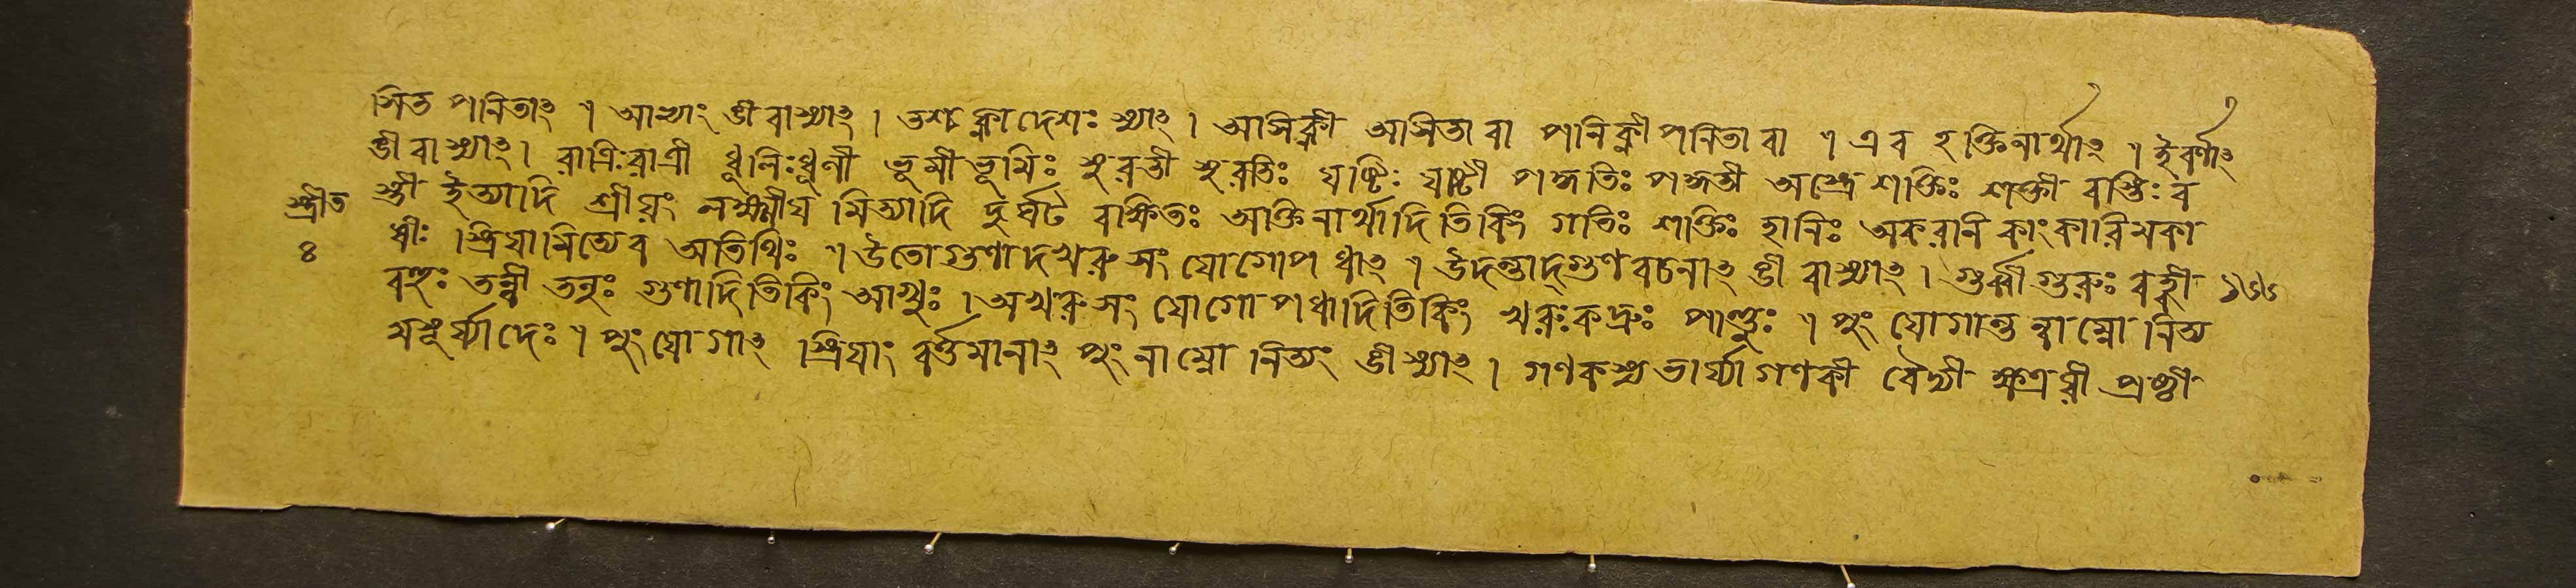 সিত পলিতাৎ । আভ্যাং ঙী বাস্যাৎ । তশ্চ ক্নাদেশঃ স্যাৎ । অসিক্নী অসিতা বা পলিক্নী পলিতা বা । এব ৎক্তিনার্থাৎ । ইবর্ণাৎ
ঙী বাস্যাৎ । রাত্রিঃ রাত্রী ধূলিঃ ধূলী ভূমী ভূমিঃ সুরভী সুরভিঃ যষ্টিঃ যষ্টী পদ্ধতিঃ পদ্ধতী অস্ত্রে শক্তিঃ শক্তী বস্তিঃ ব
স্তী ইত্যাদি শ্রীয়ং লক্ষ্মীয মিত্যাদি দুর্ঘট রক্ষিতঃ অক্তিনার্থাদিতিকিং গতিঃ শক্তিঃ হানিঃ অকরণি কাংকারিমকা
র্ষীঃ । স্ত্রিয়ামিত্যেব অতিথিঃ । উতো গুণাদখরু সংযোগোপধাৎ । উদন্তাদ্গুণবচনাৎ ঙী বাস্যাৎ । গুর্ব্বী গুরুঃ বহ্বী
বহুঃ তন্বী তনুঃ গুণাদিতিকিং আখুঃ । অখরু সংযোগোপধাদিতিকিং খরুঃ কদ্রুঃ পাণ্ডুঃ । পুংযোগাত্তন্নাম্নো নিত্য
মসূর্য্যাদেঃ । পুংযোগাৎ স্ত্রিয়াং বর্ত্তমানাৎ পুংনাম্নো নিত্যং ঙী স্যাৎ । গণকস্য ভার্য্যা গণকী বৈশ্যী ক্ষত্রয়ী প্রষ্ঠী
স্ত্রীত
৪